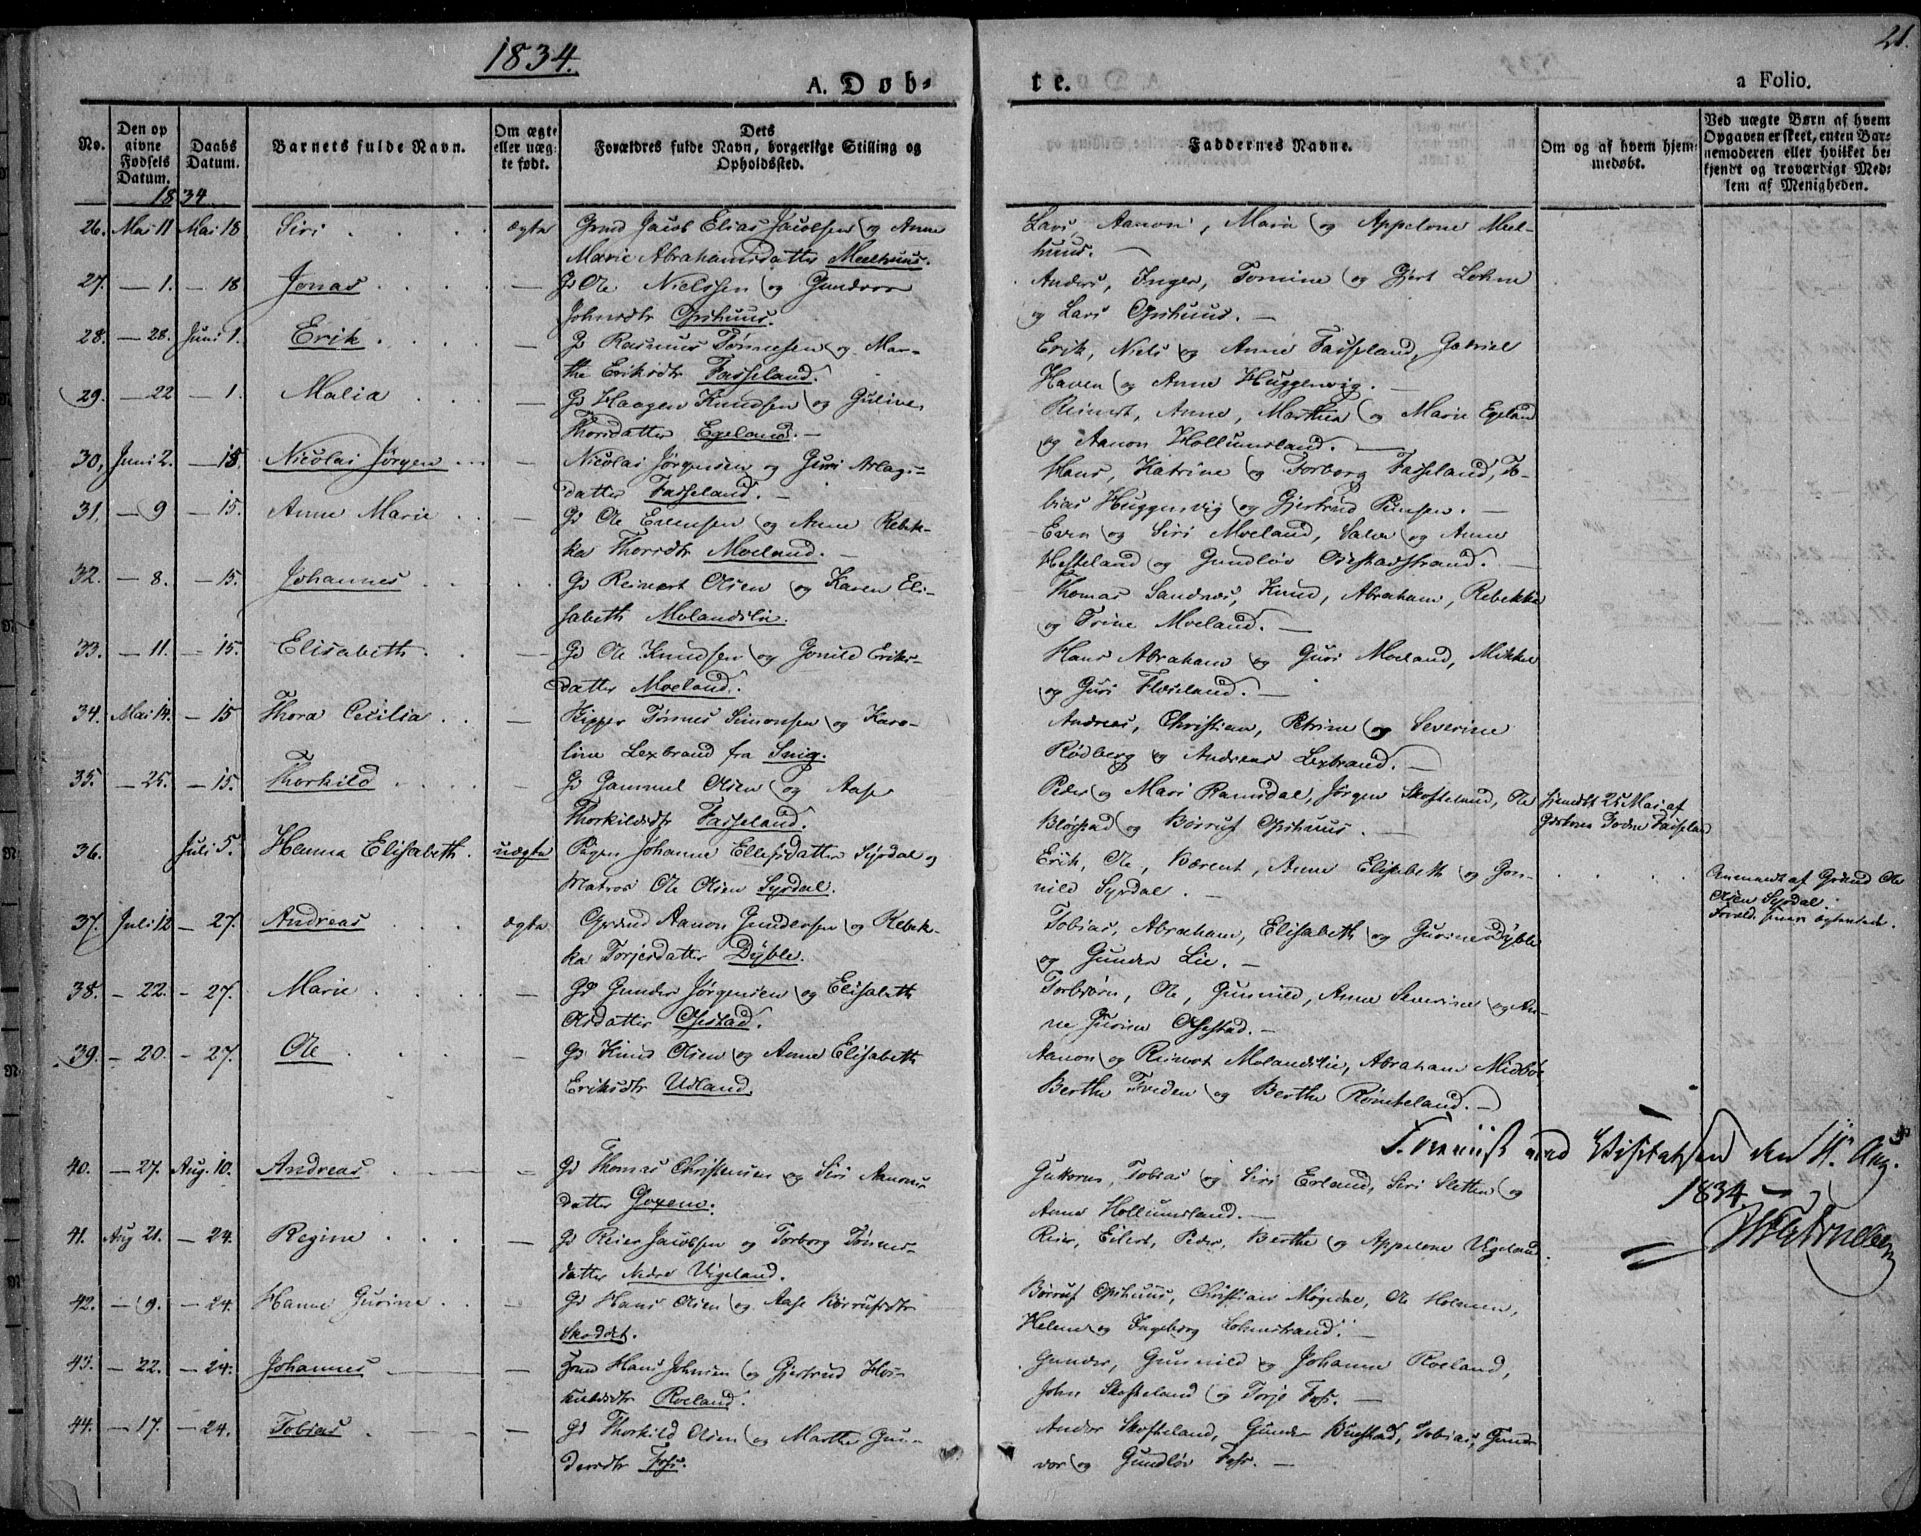 1834.
21.
A. Døb-
te.
a Folio.
No.
Den op
givne
Fødsels
Datum.
Daabs
Datum.
Barnets fulde Navn.
Om ægte
eller uæg-
te født.
Dets
Forældres fulde Navn, borgerlige Stilling og
Opholdssted.
Faddernes Navne.
Om og af hvem hjem-
medøbt.
Ved uægte Børn af hvem
Opgaven er skeet, enten Bar-
nemoderen eller hvilket be-
kjendt og troværdigt Med-
lem af Menigheden.
1834
26. Mai 11 Mai 18 Siri ægte Jacob Elias Jacobsen og Anne
Marie Abrahamsdatter Meelhuus.
Lars, Aanon, Marie og Appelone Meel-
huus.
27. — 1. — 18 Jonas — Gd Ole Nielssen og Gundvor
Johnsdtr Opshuus.
Anders, Inger, Tomine og Gjert Lohne
og Lars Opshuus. —
28. — 28. Juni 1. Erik — Gd Rasmus Tønnesen og Mar-
the Eriksdtr Faiseland.
Erik, Niels og Anne Faiseland, Gabriel
Haven og Anne Huggenvig. —
29. — 22 — 1. Malia — Gd Haagen Knudsen og Gulive
Thorsdatter Egeland. —
Reinert, Anne, Marthea og Marie Egeland
og Aanon Hollumsland. —
30. Juni 2. — 15. Nicolai Jørgen — Nicolai Jørgensen og Guri Aslags-
datter Faiseland. —
Hans, Katrine og Torborg Faiseland, To-
bias Huggenvig og Gjertrud
31. — 9 — 15. Anne Marie — Gd Ole Evensen og Anne Rebek-
ka Thorsdtr Moeland. —
Even og Siri Moeland, Salve og Anne
Hesteland og Gundløv
32. — 8. — 15. Johannes Gd Reinert Olsen og Karen Eli-
sabeth Molandslie.
Thomas Sandnes, Knud, Abraham, Rebekka
og Trine Moeland. —
33. — 11. — 15. Elisabeth — Gd Ole Knudsen og Gonild Eriks-
datter Moeland.
Hans Abraham og Guri Moeland, Mikkel
og Guri —
34. Mai 14. — 15 Thora Cecilia — Skipper Tønnes Simonsen og Karo-
line Lexbrand fra Snig.
Andreas, Christian, Petrine og Severine
Rødberg og Andreas Lexbrand. —
35. — 25. — 15. Thorkild — Gd Gammel Olsen og Aase
Thorkildsdtr Faiseland.
Peder og Mari Ramsdal, Jørgen Skofteland, Ole
Bløstad og Børruf Opshuus. —
hjemdbt 25 Mai af
36. Juli 5. Hanna Elisabeth uægte Pigen Johanne Ellefsdatter Syrdal og
Matros Ole Olsen Syrdal.
Erik, Ole, Bærent, Anne Elisabeth og Gon-
nild Syrdal.
Anmeldt af Ole
Olsen Syrdal.
37. Juli 12 — 27. Andreas ægte Aanon Gundersen og Rebek-
ka Torjesdatter Dyble.
Tobias, Abraham, Elisabeth og Gurine Dyble
og Gunder Lie. —
38. — 22. — 27. Marie — Gd Gunder Jørgensen og Elisabeth
Olsdatter Ofstad.
Torbjørn, Ole, Gunnild, Anne Severine og An-
ne Gurine Ofstad. —
39. — 20. — 27. Ole — Gd Knud Olsen og Anne Elisabeth
Eriksdtr Udland.
Aanon og Reinert Molandslie, Abraham Midbøe
Berthe Tveden og Berthe —
ved Visitatsen den 11. Aug.
1834
40. — 27. Aug. 10. Andreas — Gd Thomas Christensen og Siri Aanons-
datter
Tobias og Siri Erland, Siri Sletten og
Anne Hollumsland. —
41. Aug 21. — 24. Regine — Gd Reier Jacobsen og Torborg Tønnes-
datter Nedre Vigeland.
Reier, Eilert, Peder, Berthe og Appelone Vigeland.
42. — 9. — 24. Hanne Gurine — Gd Hans Olsen og Aase Børrufsdtr
Børruf Opshuus, Christian Møgedal, Ole Holmen,
Helene og Ingeborg Lohnstrand. —
43. — 22. — 24. Johannes — Hans Johnsen og Gjertrud Hos-
kuldsdtr Roeland.
Gunder, Gunnild og Johanne Roeland,
John Skofteland og Torje Foss. —
44. — 17. — 24. Tobias — Gd Thorkild Olsen og Marthe Gun-
dersdtr Foss.
Anders Skofteland, Gunder Buestad, Tobias, Gund-
vor og Gundløv Foss. —